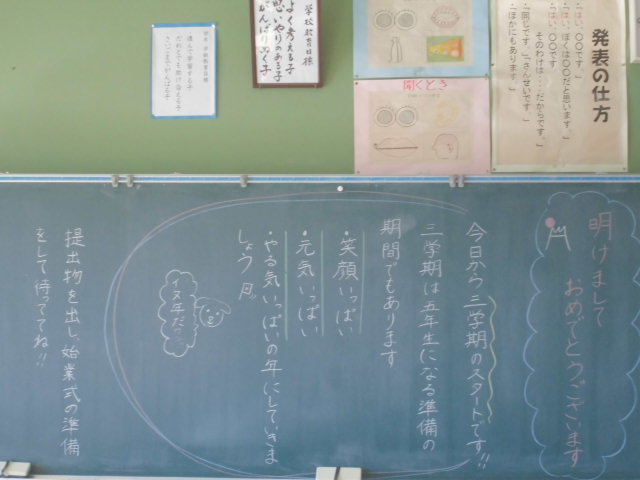 発表の仕方
・「はい、〇〇です」
・「はい、ぼくは〇〇だと思います。
そのわけは・・・だからです。」
・「同じです。」「さんせいです。」
・「ほかにもあります。」
聞くとき
学校教育目標
よく考える子
思いやりのある子
がんばりぬく子
進んで学習する子
だれとでも助け合える子
さいごまでがんばる子
明けまして
おめでとうございます
今日から三学期のスタートです!!
三学期は五年生になる準備の
期間でもあります
・笑顔いっぱい
・元気いっぱい
・やる気いっぱいの年にしていきま
しょう
イヌ年だワン
提出物を出し、始業式の準備
をして待っててね!!